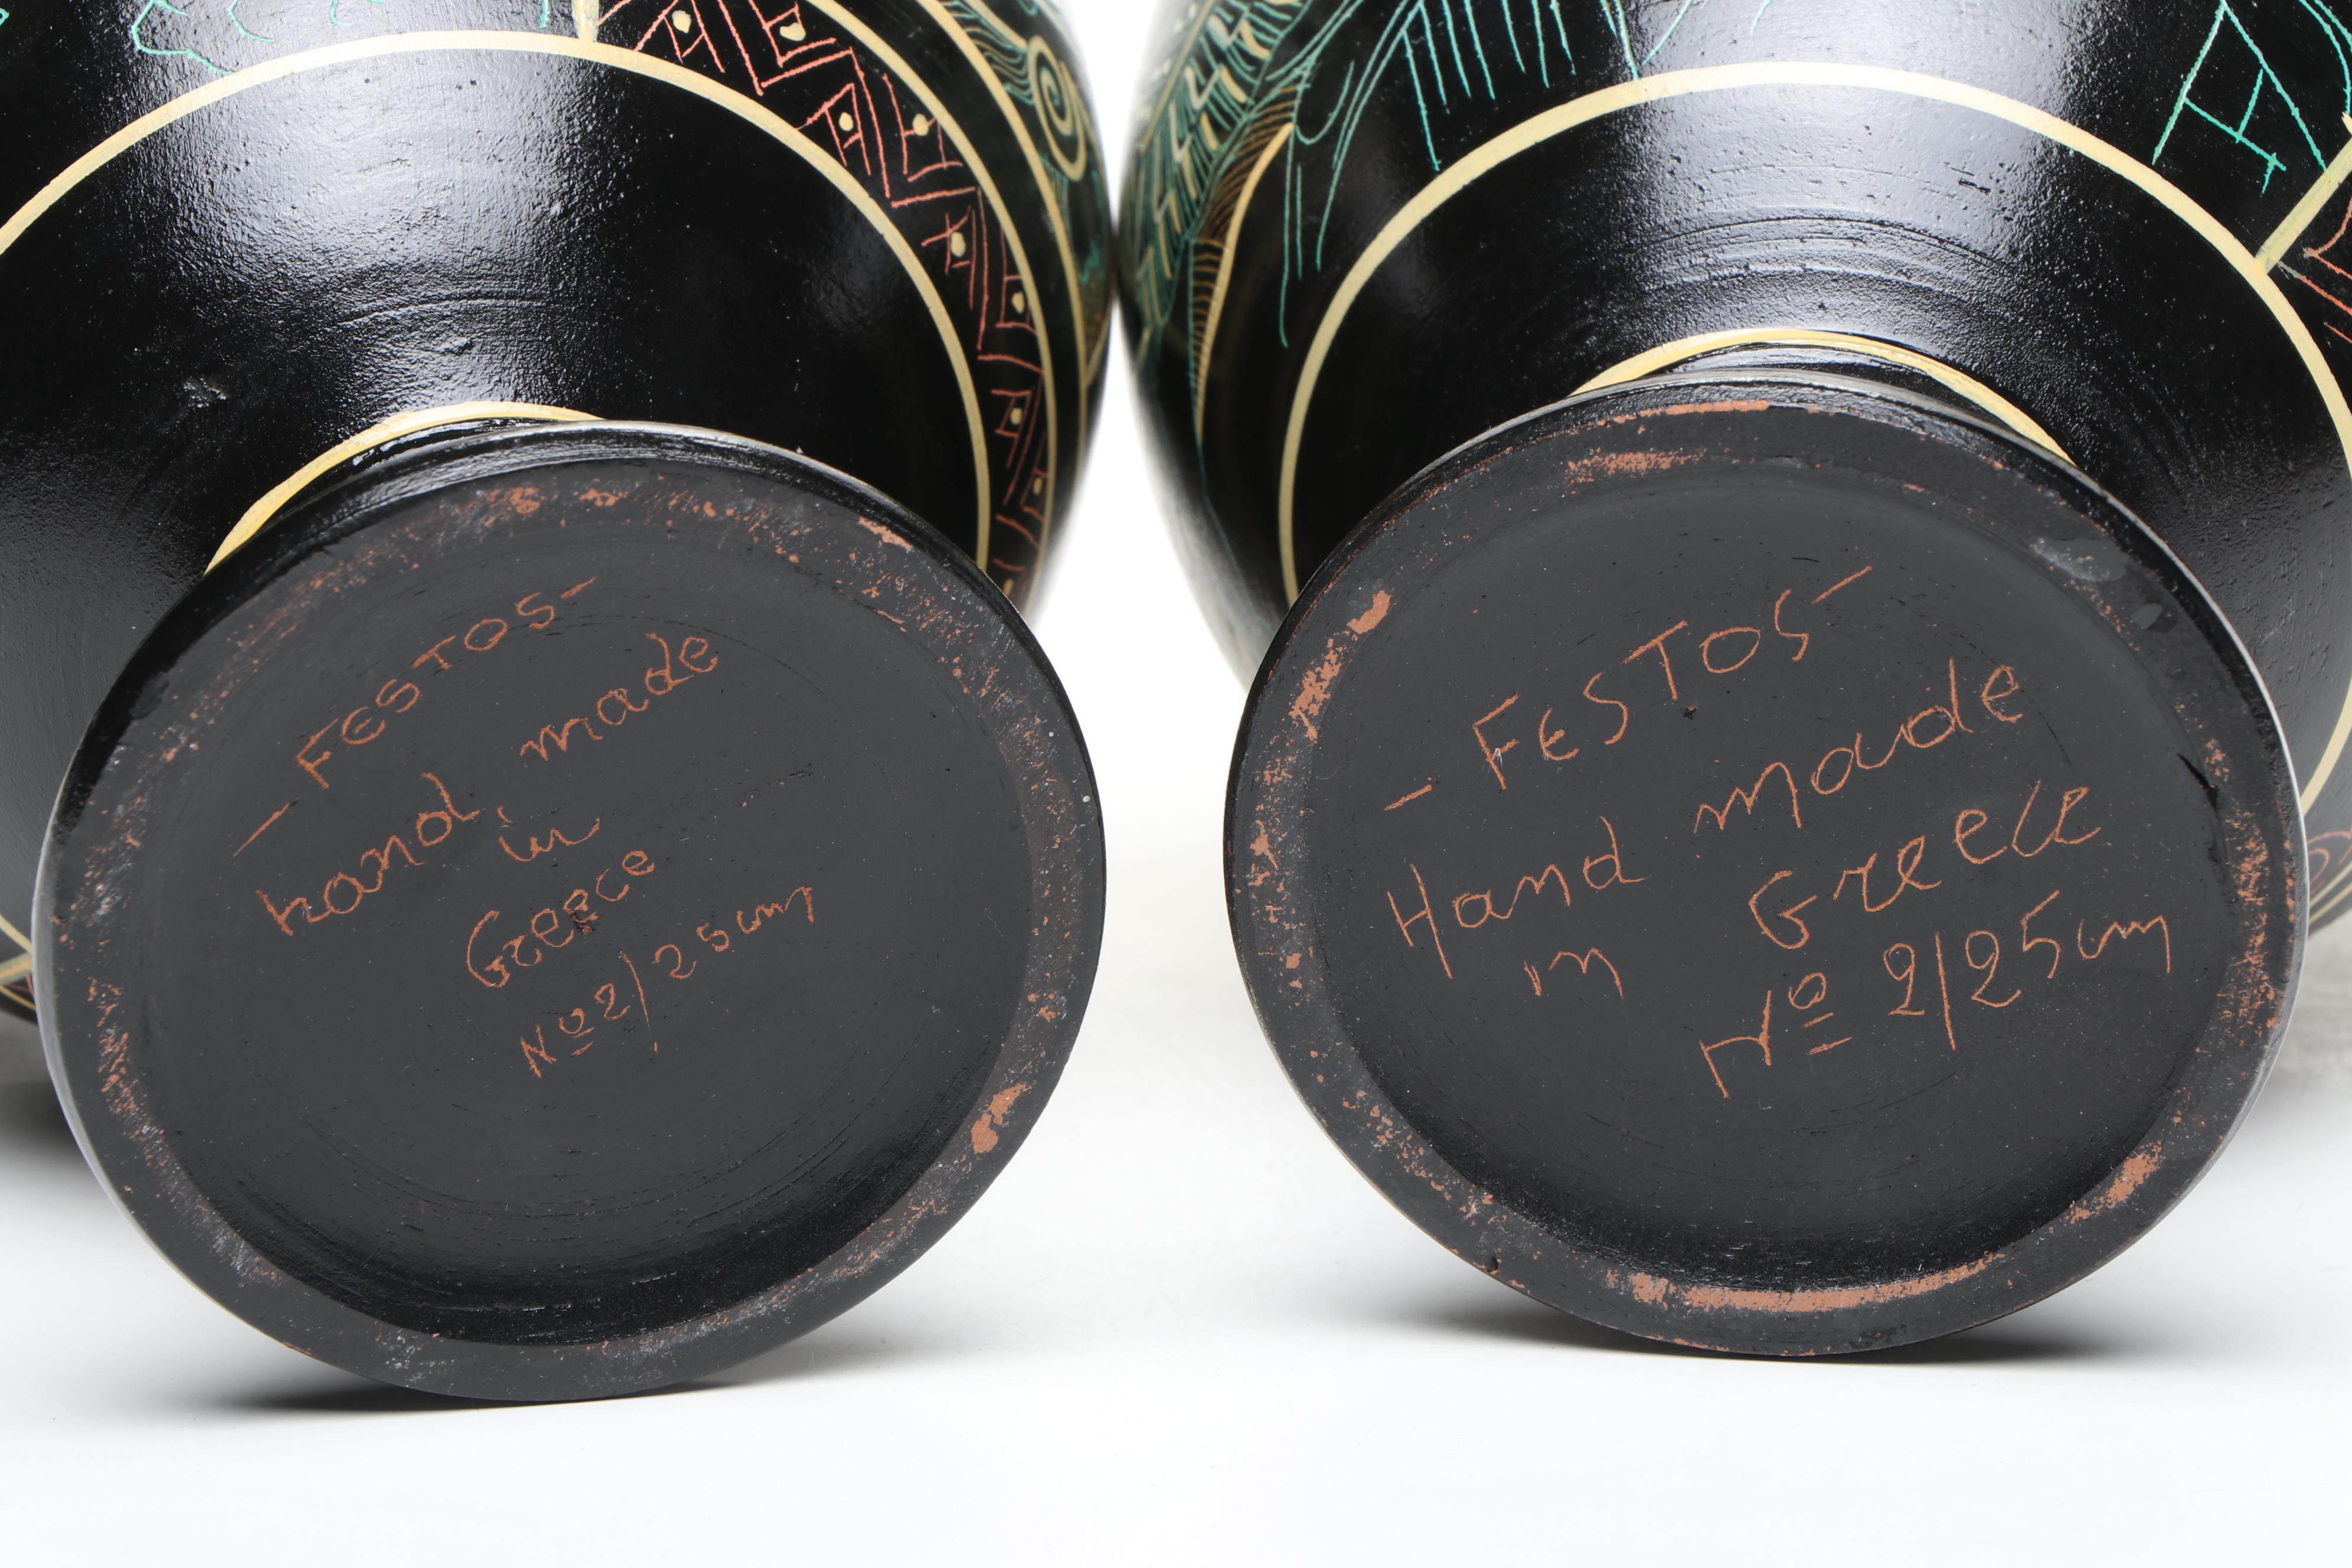 - FESTOS -
hand, made
in
Greece
Nº 2/25cm
- FESTOS -
Hand made
in Greece
Nº 2/25cm